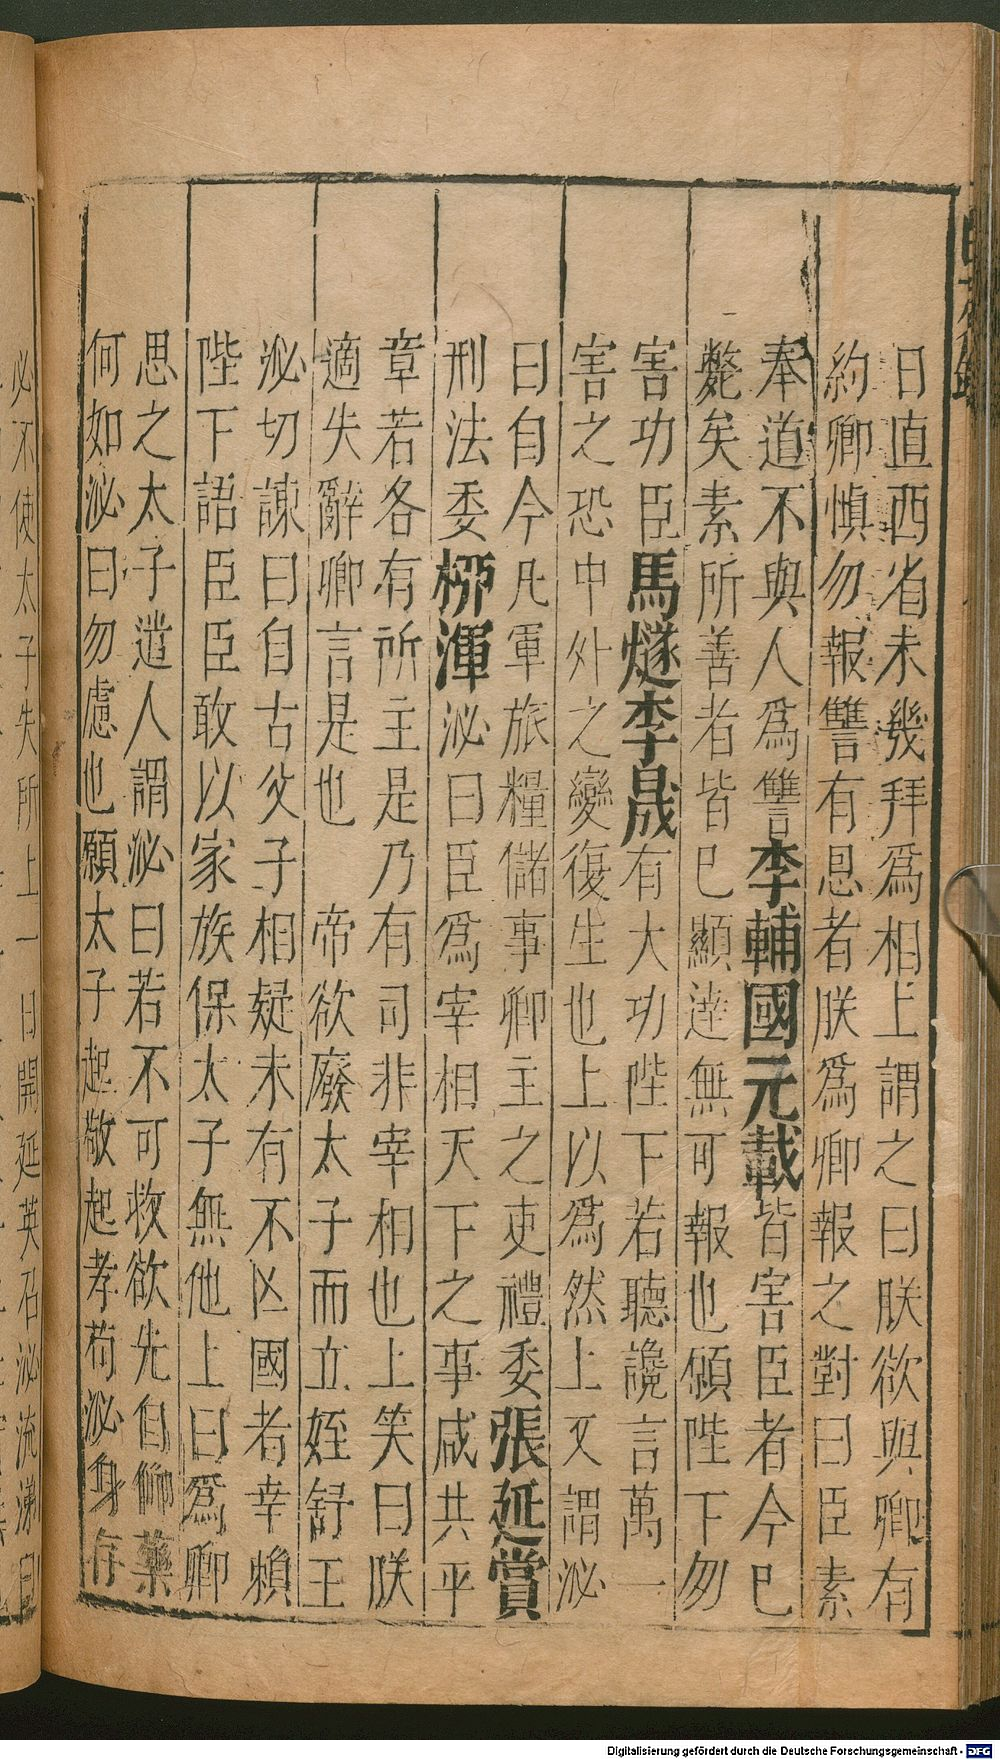 日直西省未幾拜爲相上謂之曰朕欲與卿有
約卿慎勿報讐有恩者朕爲卿報之對曰臣素
奉道不與人爲讐李輔國元載皆害臣者今巳
斃矣素所善者皆巳顯達無可報也願陛下勿
害功臣馬燧李晟有大功陛下若聽讒言萬一
害之恐中外之變復生也上以爲然上又謂泌
曰自今凡軍旅糧儲事卿主之吏禮委張延賞
刑法委栁渾泌曰臣爲宰相天下之事咸共平
章若各有所主是乃有司非宰相也上笑曰朕
適失辭卿言是也　帝欲廢太子而立姪舒王
泌切諫曰自古父子相疑未有不亾國者幸賴
陛下語臣臣敢以家族保太子無他上曰爲卿
思之太子遣人謂泌曰若不可救欲先自仰藥
何如泌曰勿慮也願太子起敬起孝苟泌身存
必不使太子失所上一日開延英召泌流涕
Digitalisierung gefördert durch die Deutsche Forschungsgemeinschaft - DFG